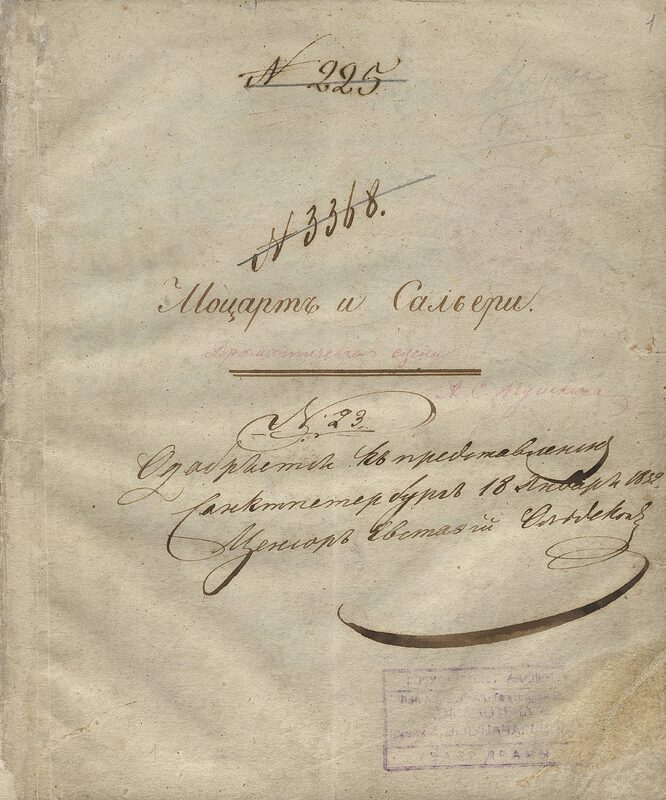 1
N 225
N 3368.
Моцартъ и Сальери.
Драматическая сцены
А. С. Пушкина
N. 23.
Одобряется къ представленію
Санктпетербургъ 18 Января 1832
Ценсоръ Евстафій Ольдекопъ